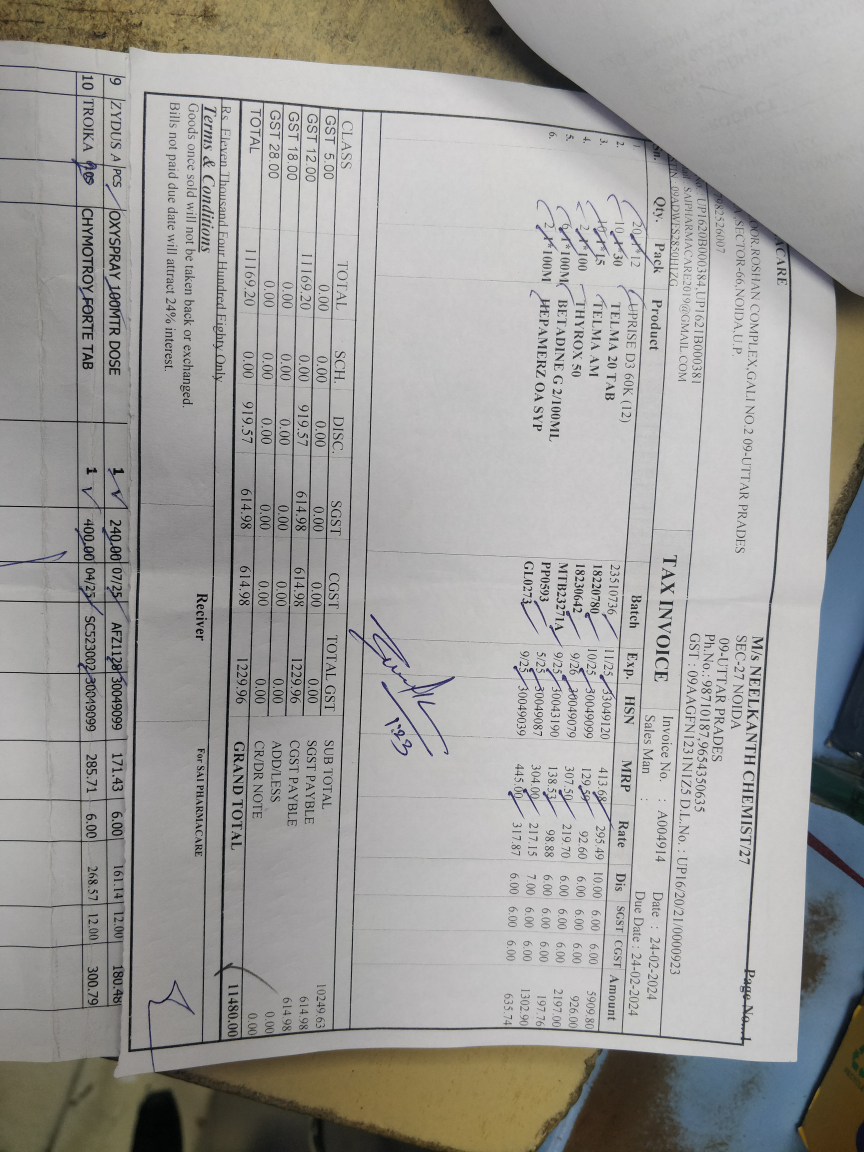 ACARE
OOR,ROSHAN COMPLEX,GALI NO.2 09-UTTAR PRADES
,SECTOR-66,NOIDA,U.P.
62526007
UP1620B000384,UP1621B000381
SAIPHARMACARE2019@GMAIL.COM
09ADWFS2850H1ZG
Page No..1
M/s NEELKANTH CHEMIST/27
SEC-27 NOIDA
09-UTTAR PRADES
Ph.No.: 98710187,9654350635
GST : 09AAGFN1231N1Z5 D.L.No. : UP16/20/21/0000923
TAX INVOICE
Invoice No. : A004914 Date : 24-02-2024
Sales Man : Due Date : 24-02-2024
Sn. Qty. Pack Product Batch Exp. HSN MRP Rate Dis SGST CGST Amount
1. 20 1*12 UPRISE D3 60K (12) 23510736 11/25 33049120 413.68 295.49 10.00 6.00 6.00 5909.80
2. 10 1*30 TELMA 20 TAB 18220780 10/25 30049099 129.59 92.60 6.00 6.00 6.00 926.00
3. 10 1*15 TELMA AM 18230642 9/26 30049079 307.50 219.70 6.00 6.00 6.00 2197.00
4. 2 1*100 THYROX 50 MTB23271A 9/25 30043190 138.53 98.88 6.00 6.00 6.00 197.76
5. 6 1*100M BETADINE G 2/100ML PP0593 5/25 30049087 304.00 217.15 7.00 6.00 6.00 1302.90
6. 2 1*100M HEPAMERZ OA SYP GL0273 9/25 30049039 445.00 317.87 6.00 6.00 6.00 635.74
CLASS TOTAL SCH. DISC. SGST CGST TOTAL GST
GST 5.00 0.00 0.00 0.00 0.00 0.00 0.00
GST 12.00 11169.20 0.00 919.57 614.98 614.98 1229.96
GST 18.00 0.00 0.00 0.00 0.00 0.00 0.00
GST 28.00 0.00 0.00 0.00 0.00 0.00 0.00
TOTAL 11169.20 0.00 919.57 614.98 614.98 1229.96
SUB TOTAL 10249.63
SGST PAYBLE 614.98
CGST PAYBLE 614.98
ADD/LESS 0.00
CR/DR NOTE 0.00
GRAND TOTAL 11480.00
Rs. Eleven Thousand Four Hundred Eighty Only
Terms & Conditions
Goods once sold will not be taken back or exchanged.
Bills not paid due date will attract 24% interest.
Reciver
For SAI PHARMACARE
9 ZYDUS A PCS OXYSPRAY 100MTR DOSE 1 240.00 07/25 AFZ1128 30049099 171.43 6.00 161.14 12.00 180.48
10 TROIKA CHYMOTROY FORTE TAB 1 400.00 04/25 SC523002 30049099 285.71 6.00 268.57 12.00 300.79